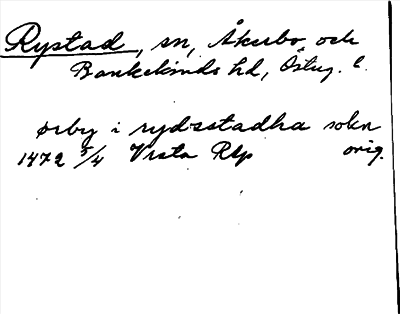 Rystad, sn, Åkerbo och
Bankekinds hd, Östug. l.
ørby i rydsstadha sokn
1472 5/4 Vista Rep orig.